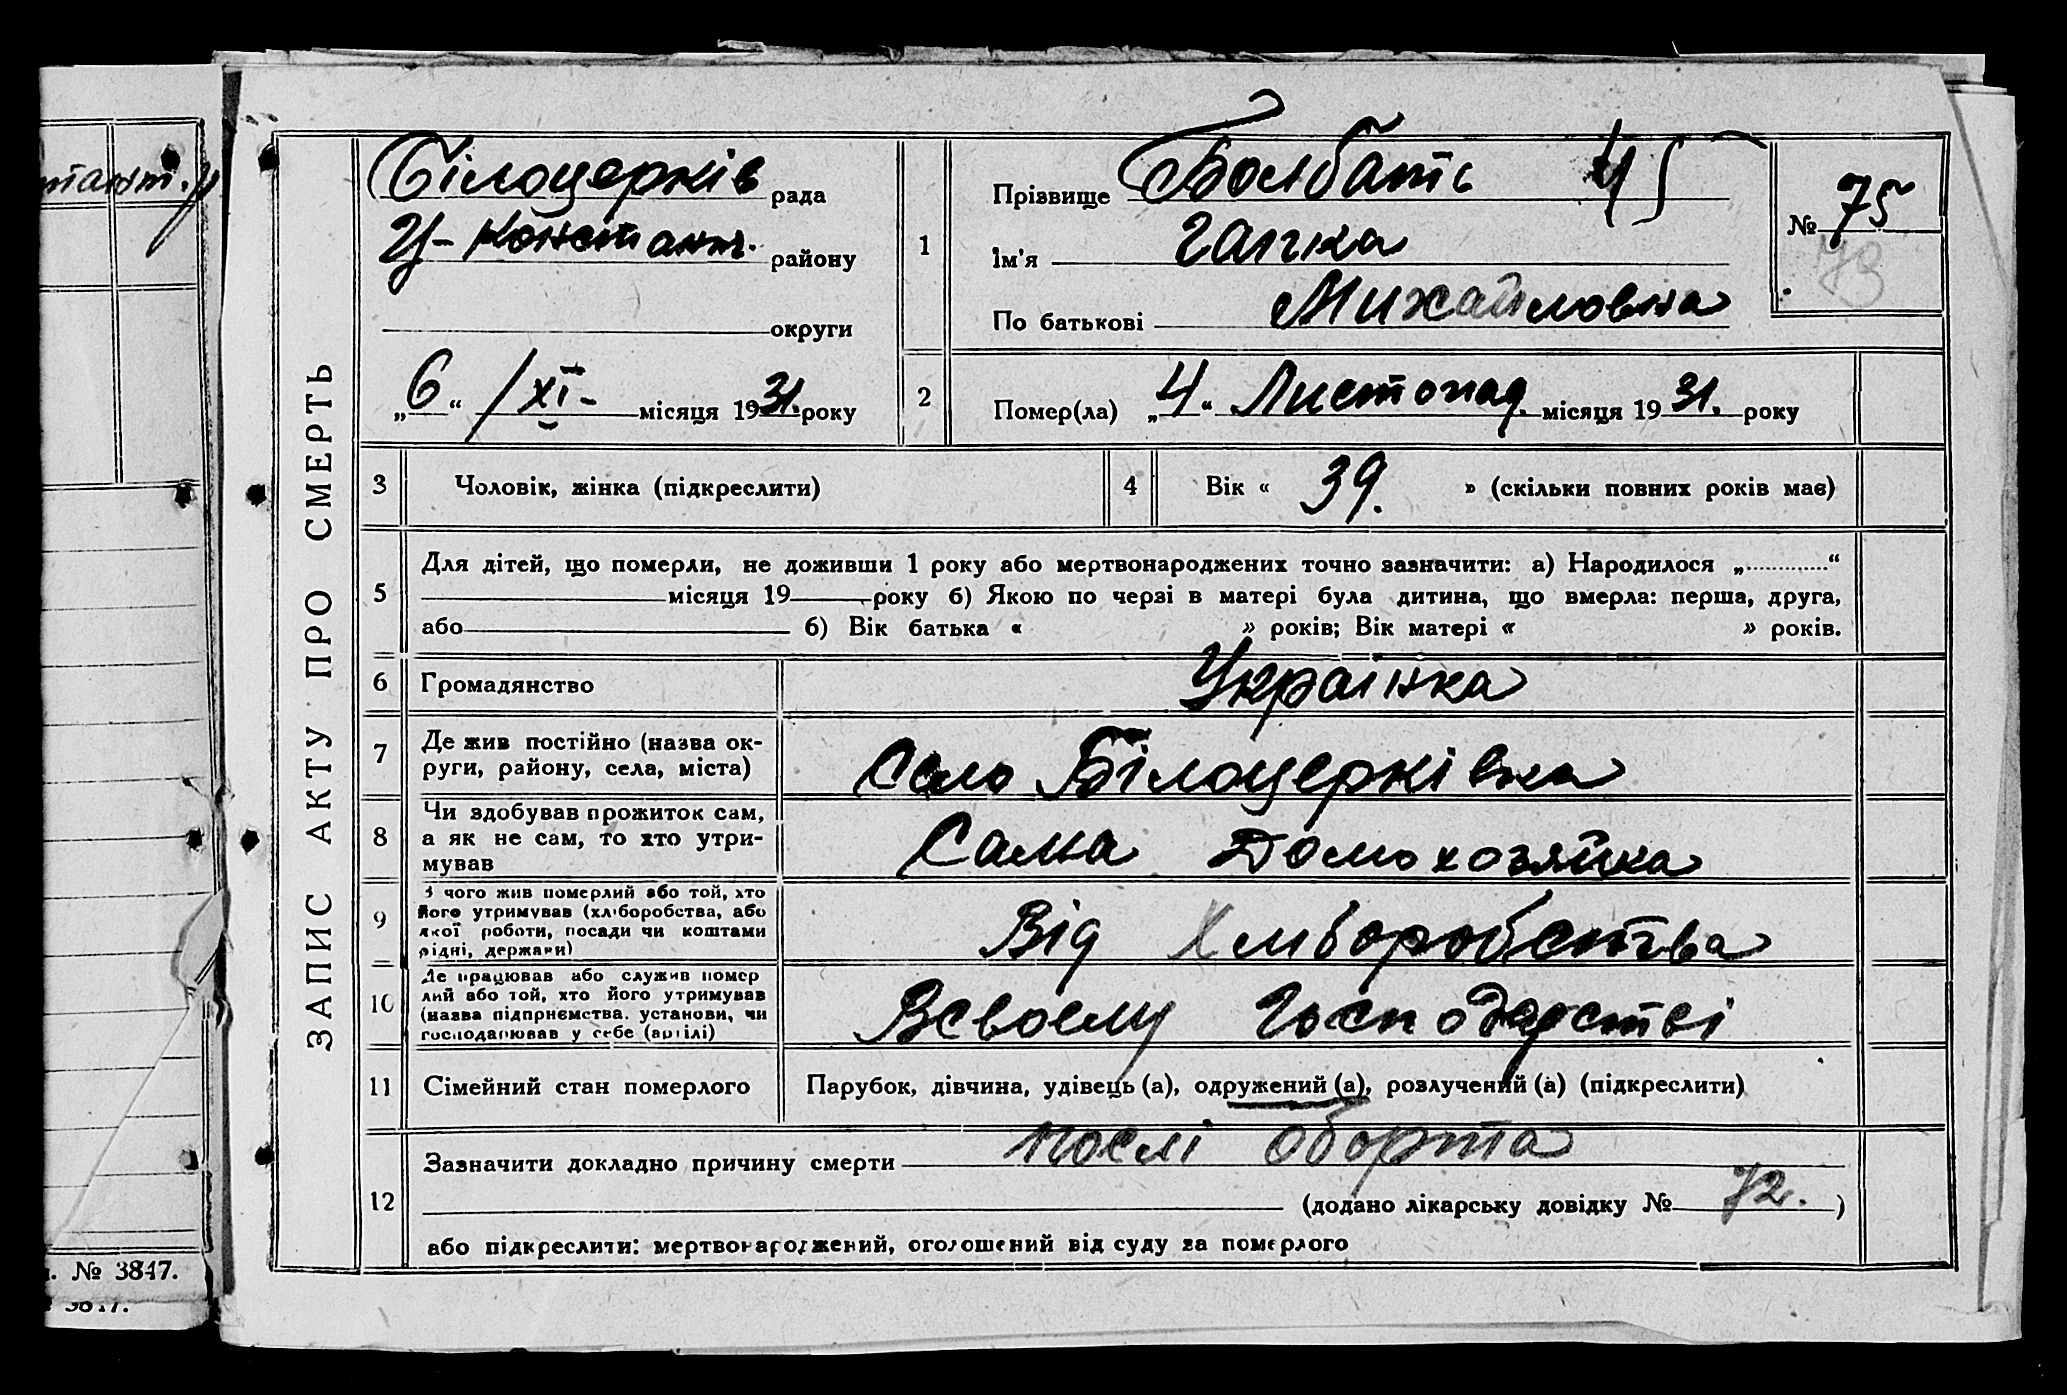 тант. р
. № 3847.
3847.
ЗАПИС АКТУ ПРО СМЕРТЬ
Білоцерків рада
У-Констант. району
округи
„6“ /XI- місяця 1931. року
1
Прізвище Болбать 45
Ім'я Гапка
По батькові Михайловна
№ 75
73
2
Помер(ла) „4“ Листопад. місяця 1931. року
3 Чоловік, жінка (підкреслити)
4 Вік « 39. » (скільки повних років має)
5
Для дітей, що померли, не доживши 1 року або мертвонароджених точно зазначити: а) Народилося „............“
місяця 19 року б) Якою по черзі в матері була дитина, що вмерла: перша, друга,
або б) Вік батька « » років; Вік матері « » років.
6 Громадянство Українка
7 Де жив постійно (назва ок-
руги, району, села, міста)
Село Білоцерківка
8 Чи здобував прожиток сам,
а як не сам, то хто утри-
мував
Сама Домохозяйка
9 З чого жив померлий або той, хто
його утримував (хліборобства, або
якої роботи, посади чи коштами
рідні, держави)
Від Хлиборобства
10 Де працював або служив помер
лий або той, хто його утримував
(назва підприємства, установи, чи
господарював у себе (артілі)
Всвоему Господарстві
11 Сімейний стан померлого Парубок, дівчина, удівець (а), одружений (а), розлучений (а) (підкреслити)
12 Зазначити докладно причину смерти послі оборта
(додано лікарську довідку № 72. )
або підкреслити: мертвонароджений, оголошений від суду за померлого